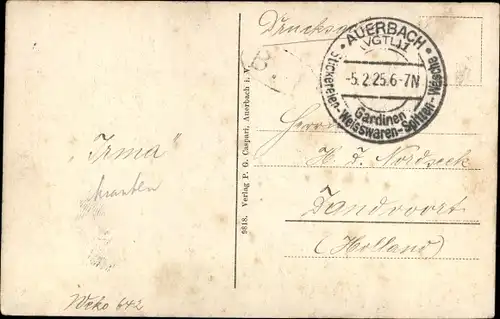 Drucksache
AUERBACH
(VGTL.) 1
-5.2.25.6-7N
Gardinen
Stickereien-Weisswaren-Spitzen-Wäsche
Herrn
H. D. Nordseck
Zandvoort
(Holland)
"Irma"
9818. Verlag P. G. Caspari, Auerbach i. V.
Weko 642